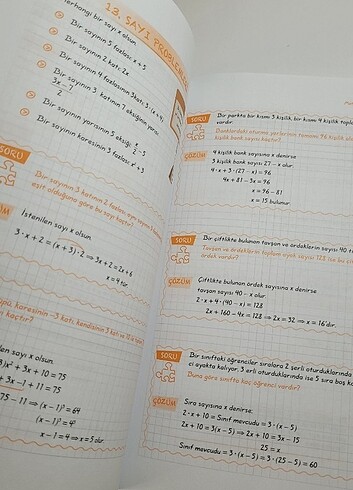 13. SAYI PROBLEMLERİ
herhangi bir sayı x olsun.
Bir sayının 5 fazlası: x + 5
Bir sayının 2 katı: 2x
Bir sayının 4 fazlasının 3 katı: 3 · (x + 4)
Bir sayının 3 katının 7 eksiğinin yarısı
3x - 7
2
Bir sayının yarısının 5 eksiği: x/2 - 5
Bir sayının karesinin 3 fazlası: x² + 3
SORU
Bir sayının 3 katının 2 fazlası aynı sayının
eşit olduğuna göre bu sayı kaçtır?
İstenilen sayı x olsun.
3 · x + 2 = (x + 3) · 2 ⇒ 3x + 2 = 2x + 6
x = 4 tür.
karesinin -3 katı, kendisinin 3 katı ve 10
kaçtır?
sayı x olsun.
x² + 3x + 10 = 75
+ 3x - 1 + 11 = 75
75 - 11 ⇒ (x - 1)³ = 64
(x - 1)³ = 4³
x - 1 = 4 ⇒ x = 5 olur.
SORU
Bir parkta bir kısmı 3 kişilik, bir kısmı 4 kişilik
vardır.
Banklardaki oturma yerlerinin tamamı 96 kişilik
kişilik bank sayısı kaçtır?
ÇÖZÜM
4 kişilik bank sayısına x denirse
3 kişilik bank sayısı 27 - x olur.
4 · x + 3 · (27 - x) = 96
4x + 81 - 3x = 96
x = 96 - 81
x = 15 bulunur.
SORU
Bir çiftlikte bulunan tavşan ve ördeklerin sayısı 40
Tavşan ve ördeklerin toplam ayak sayısı 128 ise bu
ördek vardır?
ÇÖZÜM
Çiftlikte bulunan ördek sayısına x denirse
tavşan sayısı 40 - x olur.
2 · x + 4 · (40 - x) = 128
2x + 160 - 4x = 128 ⇒ 2x = 32 ⇒ x = 16 dır.
SORU
Bir sınıftaki öğrenciler sıralara 2 şerli oturduklarında
ci ayakta kalıyor. 3 erli oturduklarında ise 5 sıra boş
Buna göre sınıfta kaç öğrenci vardır?
ÇÖZÜM
Sıra sayısına x denirse;
2 · x + 10 = Sınıf mevcudu = 3 · (x - 5)
2x + 10 = 3(x - 5) ⇒ 2x + 10 = 3x - 15
25 = x
Sınıf mevcudu = 3 · (x - 5) = 3 · (25 - 5) = 60